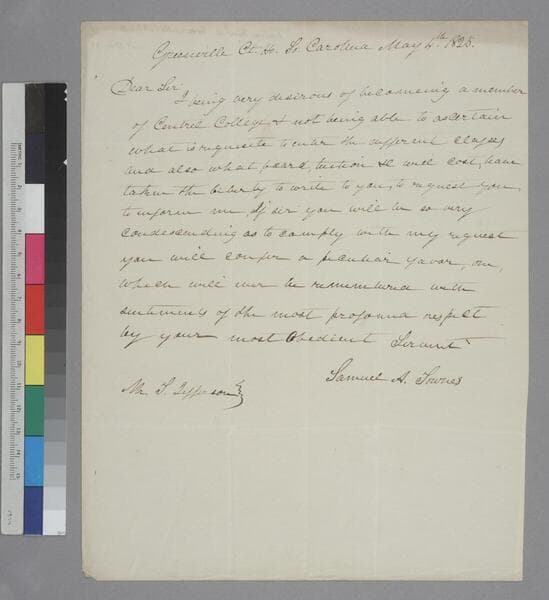 Greenville Ct. H. So Carolina May 4th 1825.
Dear Sir
I being very desirous of becomeing a member
of Centrel College, & not being able to ascertain
what is requisite to enter the different classes
and also what board, tuition &c will cost, have
taken the liberty to write to you, to request you
to inform me, If sir you will be so very
condescending as to comply with my request
you will confer a peculiar favor, on,
which will ever be remembered with
sentiments of the most profound respect
by your most Obedient Servant
Samuel A. Townes
Mr. T. Jefferson